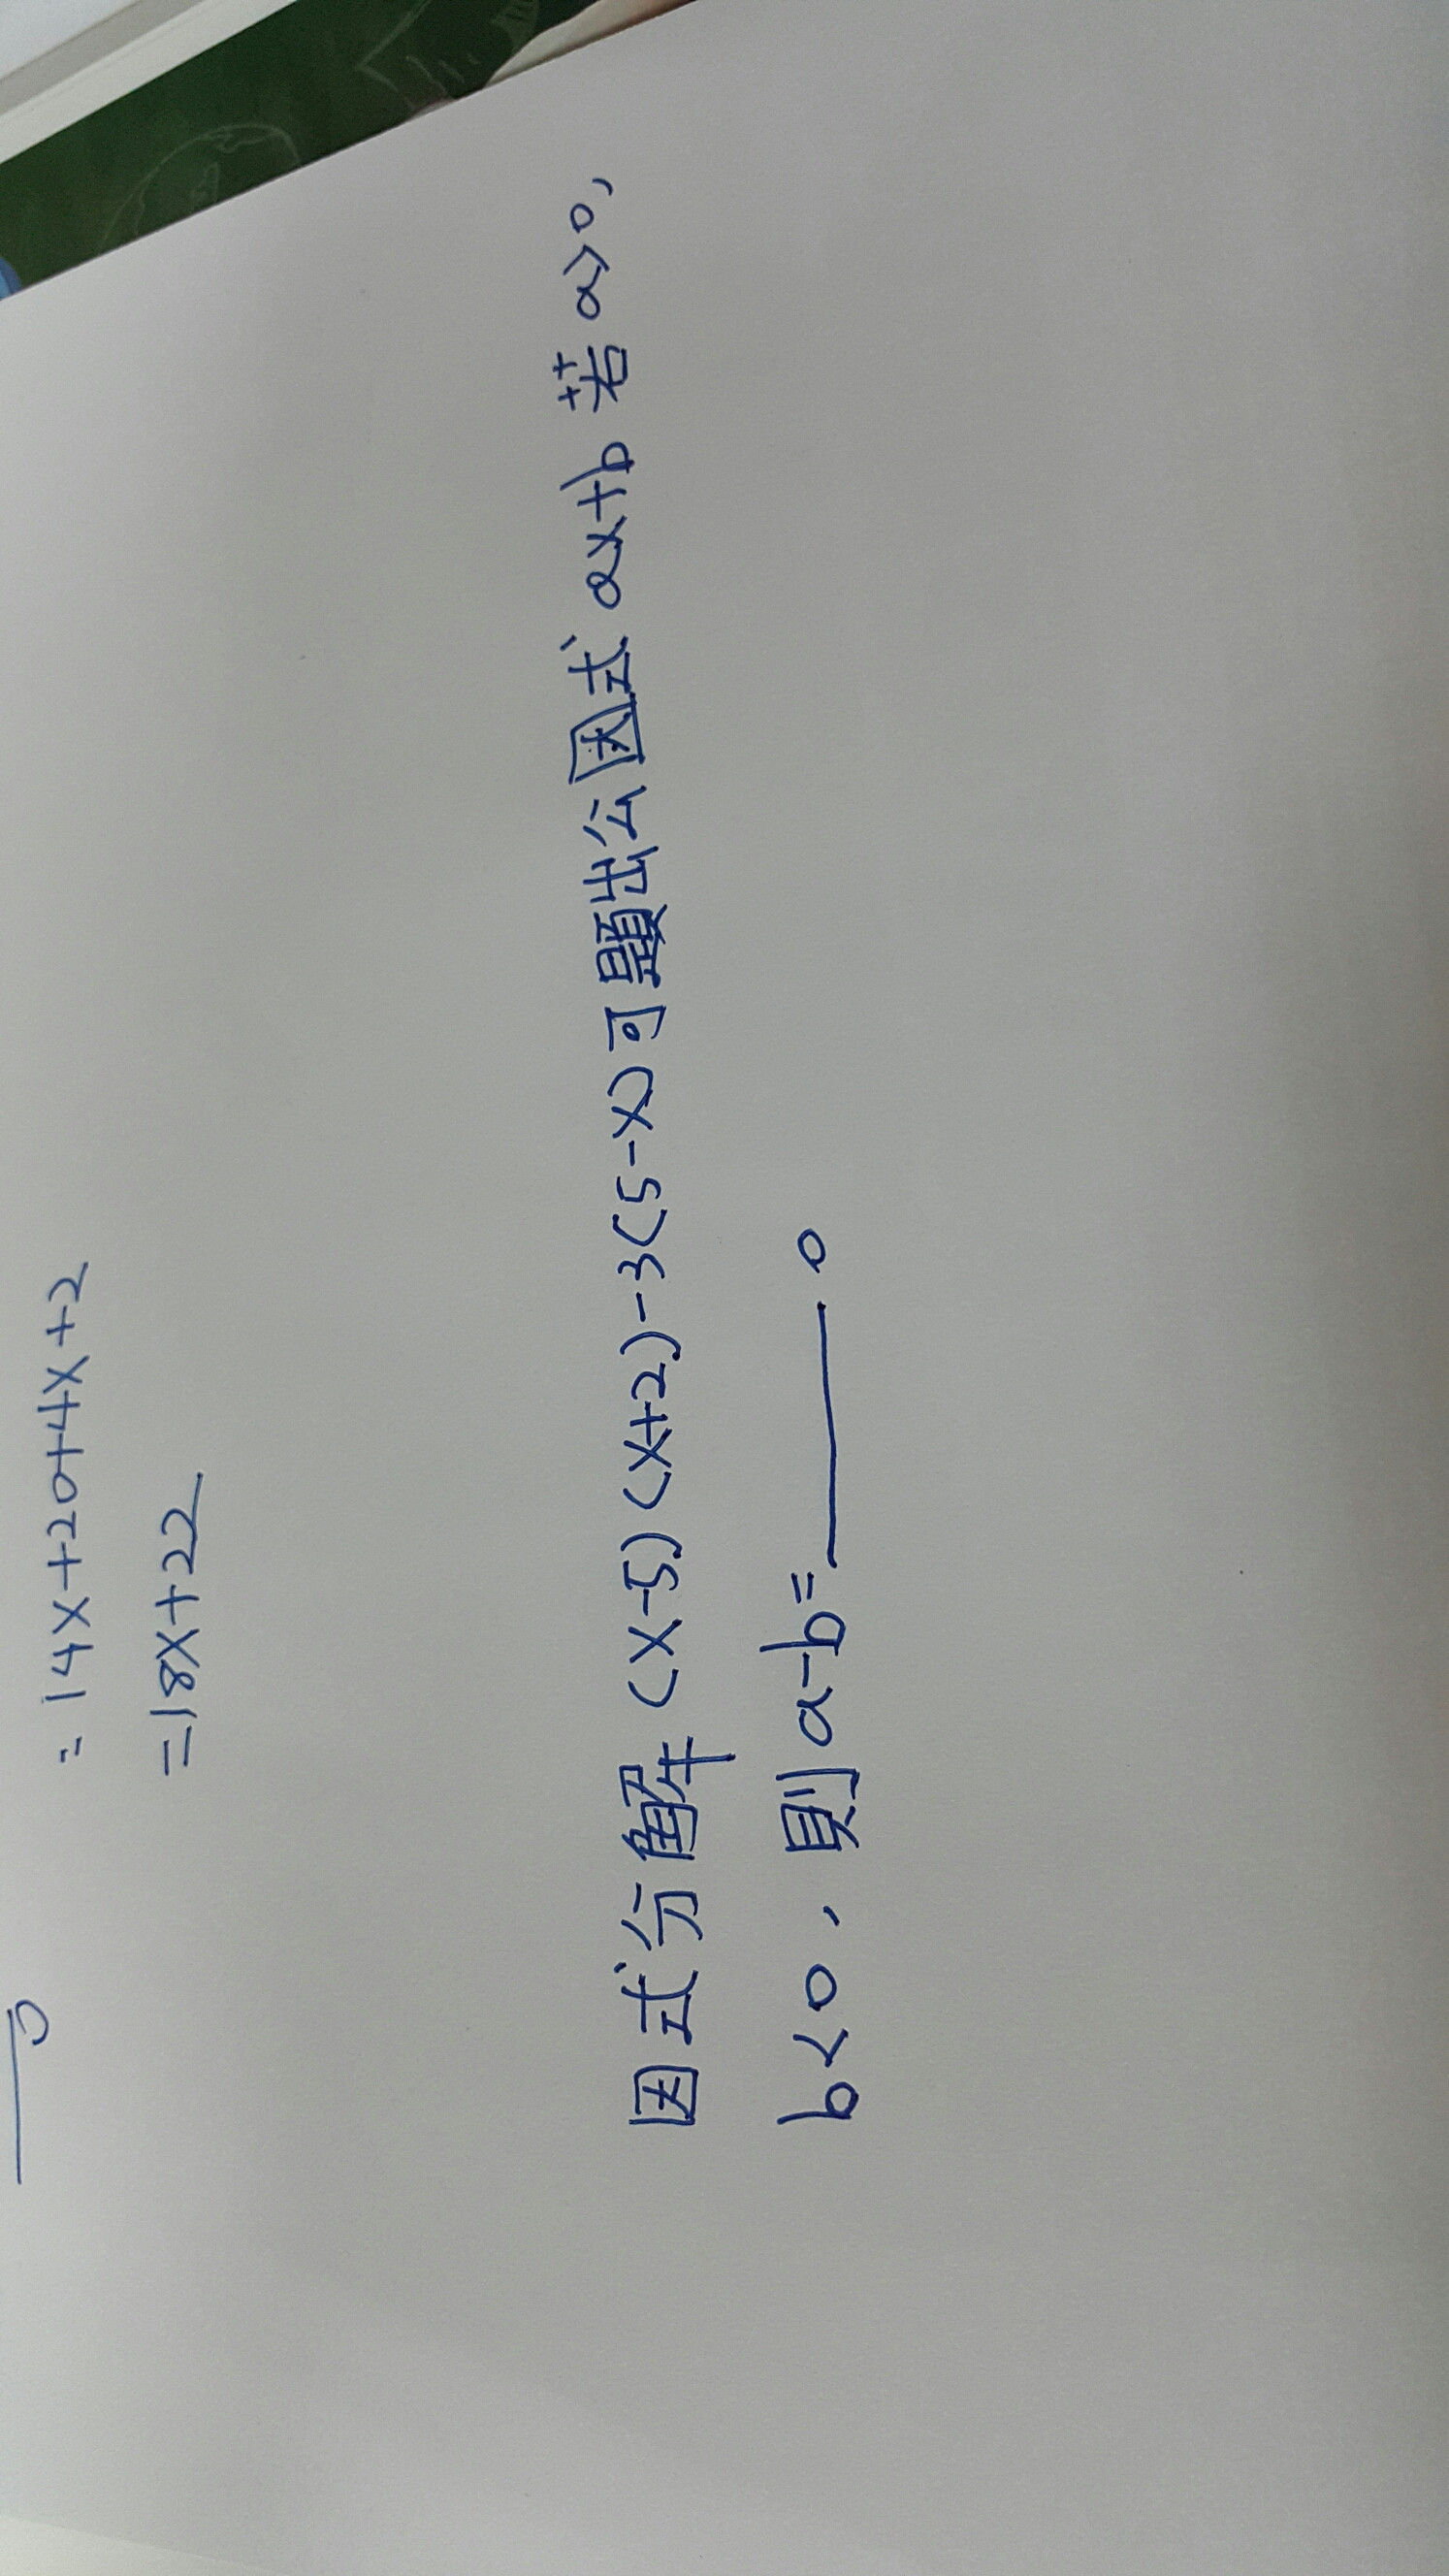 =14x+20+4x+2
=18x+22
因式分解(x-5)(x+2)-3(5-x)可顯出公因式ax+b若a>0,
b<0,則a-b=______。